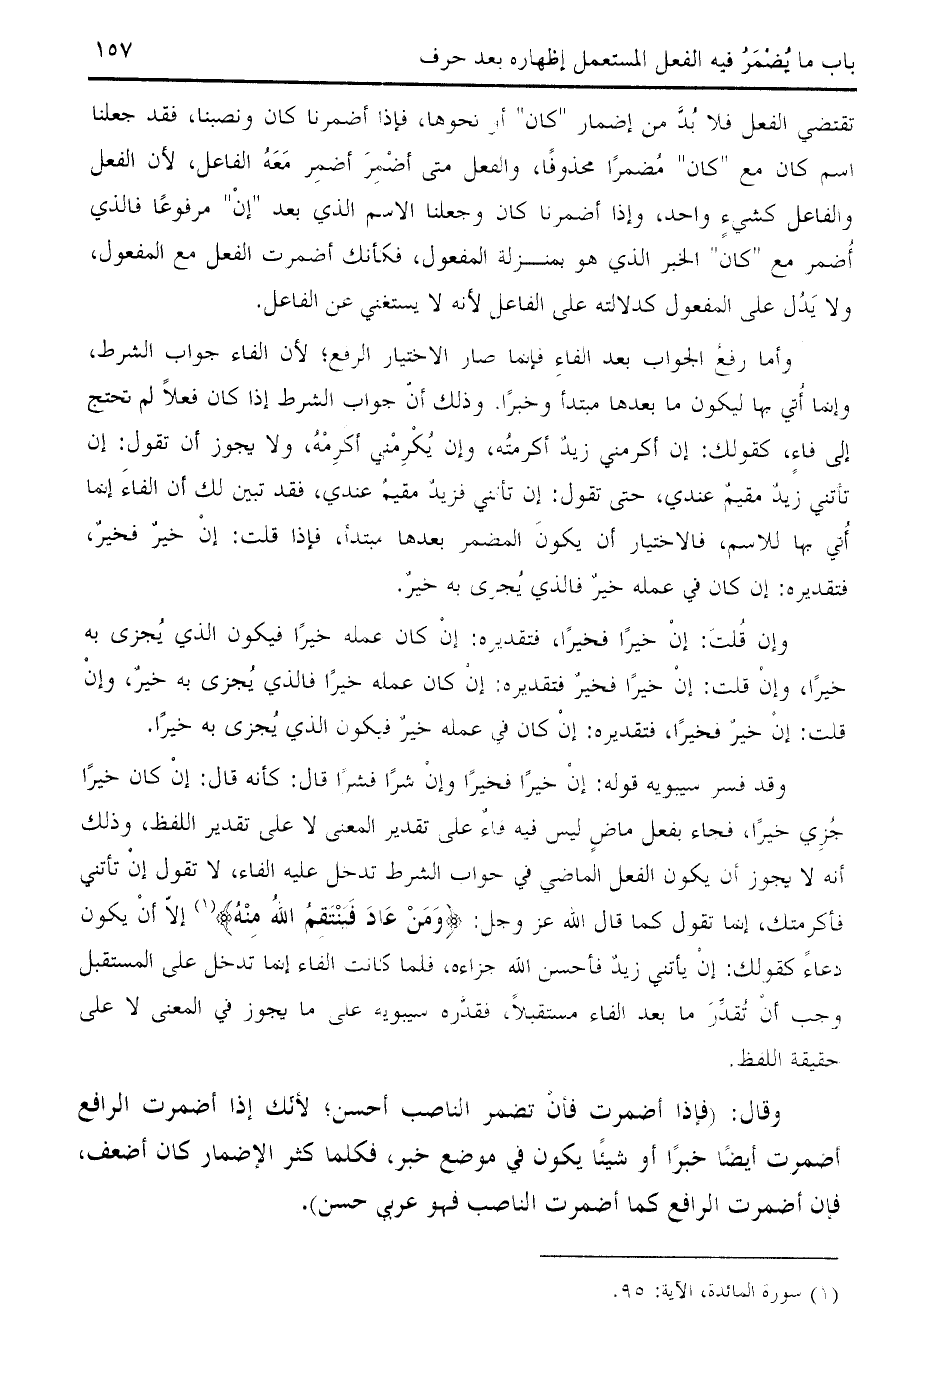 باب ما يُضْمَرُ فيه الفعل المستعمل إظهاره بعد حرف ١٥٧
تقتضي الفعل فلا بُدَّ من إضمار "كان" أو نحوها، فإذا أضمرنا كان ونصبنا، فقد جعلنا
اسم كان مع "كان" مُضمرًا محذوفًا، والفعل متى أضْمِرَ أضمِر مَعَهُ الفاعل، لأن الفعل
والفاعل كشيءٍ واحد، وإذا أضمرنا كان وجعلنا الاسم الذي بعد "إنْ" مرفوعًا فالذي
أُضمر مع "كان" الخبر الذي هو بمنـزلة المفعول، فكأنك أضمرت الفعل مع المفعول،
ولا يَدُل على المفعول كدلالته على الفاعل لأنه لا يستغني عن الفاعل.
وأما رفعُ الجواب بعد الفاءِ فإنما صار الاختيار الرفع؛ لأن الفاء جواب الشرط،
وإنما أُتي بها ليكون ما بعدها مبتدأ وخبرًا. وذلك أنّ جواب الشرط إذا كان فعلاً لم تحتج
إلى فاءٍ، كقولك: إن أكرمني زيدٌ أكرمتُه، وإن يُكْرِمْني أكرِمْهُ، ولا يجوز أن تقول: إن
تأتني زيدٌ مقيمٌ عندي، حتى تقول: إن تأتني فزيدٌ مقيمٌ عندي، فقد تبين لك أن الفاءَ إنما
أُتي بها للاسم، فالاختيار أن يكونَ المضمر بعدها مبتدأ، فإذا قلت: إنْ خيرٌ فخيرٌ،
فتقديره: إن كان في عمله خيرٌ فالذي يُجزى به خيرٌ.
وإن قُلتَ: إنْ خيرًا فخيرًا، فتقديره: إنْ كان عمله خيرًا فيكون الذي يُجزى به
خيرًا، وإنْ قلت: إنْ خيرًا فخيرٌ فتقديره: إنْ كان عمله خيرًا فالذي يُجزى به خيرٌ، وإنْ
قلت: إنْ خيرٌ فخيرًا، فتقديره: إنْ كان في عمله خيرٌ فيكون الذي يُجزى به خيرًا.
وقد فسر سيبويه قوله: إنْ خيرًا فخيرًا وإنْ شرًا فشرًا قال: كأنه قال: إنْ كان خيرًا
جُزِي خيرًا، فجاء بفعل ماضٍ ليس فيه فاءٌ على تقدير المعنى لا على تقدير اللفظ، وذلك
أنه لا يجوز أن يكون الفعل الماضي في جواب الشرط تدخل عليه الفاء، لا تقول إنْ تأتني
فأكرمتك، إنما تقول كما قال الله عز وجل: ﴿وَمَنْ عَادَ فَيَنْتَقِمُ اللهُ مِنْهُ﴾(١) إلاّ أنْ يكون
دعاءً كقولك: إنْ يأتني زيدٌ فأحسن الله جزاءه، فلما كانت الفاء إنما تدخل على المستقبل
وجب أنْ تُقدَّرَ ما بعد الفاء مستقبلاً، فقدَّره سيبويه على ما يجوز في المعنى لا على
حقيقة اللفظ.
وقال: (فإذا أضمرت فأنْ تضمر الناصب أحسن؛ لأنك إذا أضمرت الرافع
أضمرت أيضًا خبرًا أو شيئًا يكون في موضع خبر، فكلما كثر الإضمار كان أضعف،
فإن أضمرت الرافع كما أضمرت الناصب فهو عربي حسن).
(١) سورة المائدة، الآية: ٩٥.